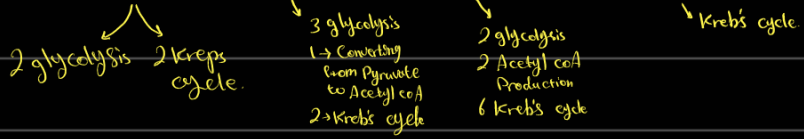 2 glycolysis 2 Kreps
cycle.
3 glycolysis
1 → Converting
from Pyruvate
to Acetyl coA
2 → Kreb's cycle
2 glycolysis
2 Acetyl coA
Production
6 Kreb's cycle
Kreb's cycle.